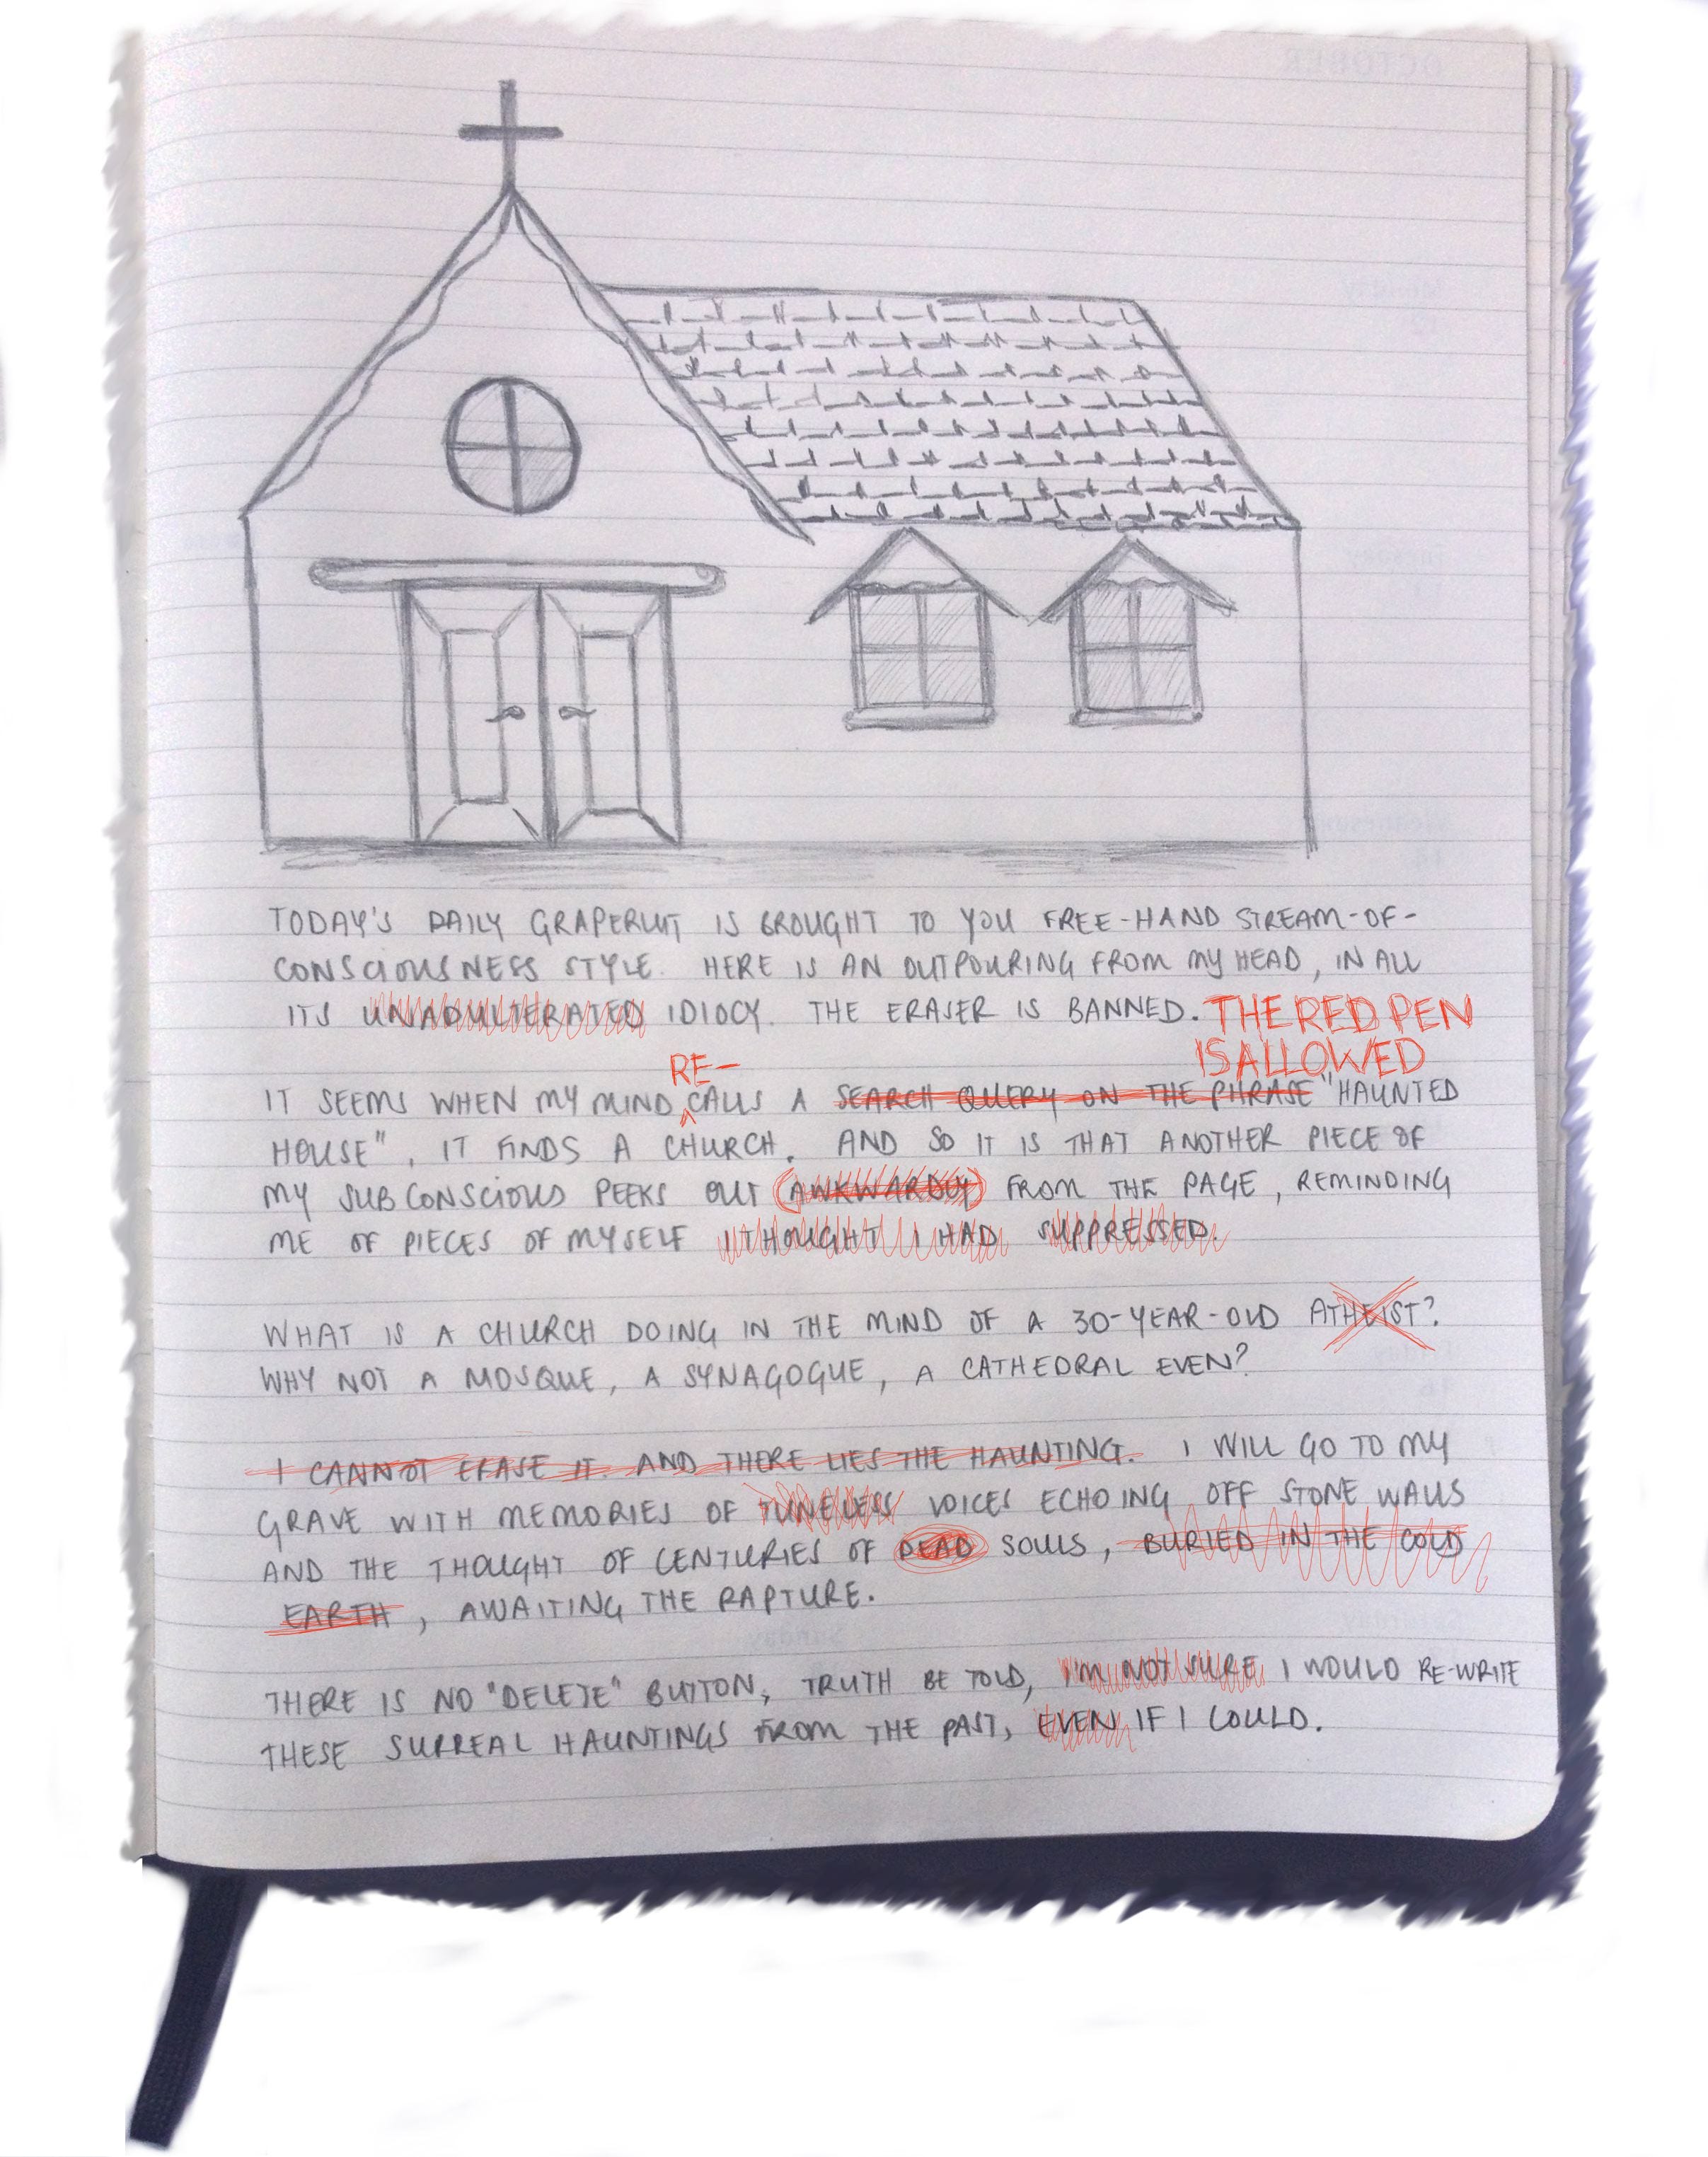 OCTOBER
TODAY'S DAILY GRAPERUIT IS BROUGHT TO YOU FREE-HAND STREAM-OF-
CONSCIOUSNESS STYLE. HERE IS AN OUTPOURING FROM MY HEAD, IN ALL
ITS UNADULTERATED IDIOCY. THE ERASER IS BANNED. THE RED PEN
IS ALLOWED
RE-
IT SEEMS WHEN MY MIND CALLS A SEARCH QUERY ON THE PHRASE "HAUNTED
HOUSE", IT FINDS A CHURCH. AND SO IT IS THAT ANOTHER PIECE OF
MY SUBCONSCIOUS PEEKS OUT (AWKWARDLY) FROM THE PAGE, REMINDING
ME OF PIECES OF MYSELF I THOUGHT I HAD SUPPRESSED.
WHAT IS A CHURCH DOING IN THE MIND OF A 30-YEAR-OLD ATHEIST?
WHY NOT A MOSQUE, A SYNAGOGUE, A CATHEDRAL EVEN?
I CANNOT ERASE IT. AND THERE LIES THE HAUNTING. I WILL GO TO MY
GRAVE WITH MEMORIES OF TUNELESS VOICES ECHOING OFF STONE WALLS
AND THE THOUGHT OF CENTURIES OF DEAD SOULS, BURIED IN THE COLD
EARTH, AWAITING THE RAPTURE.
THERE IS NO "DELETE" BUTTON, TRUTH BE TOLD, I'M NOT SURE I WOULD RE-WRITE
THESE SURREAL HAUNTINGS FROM THE PAST, EVEN IF I COULD.